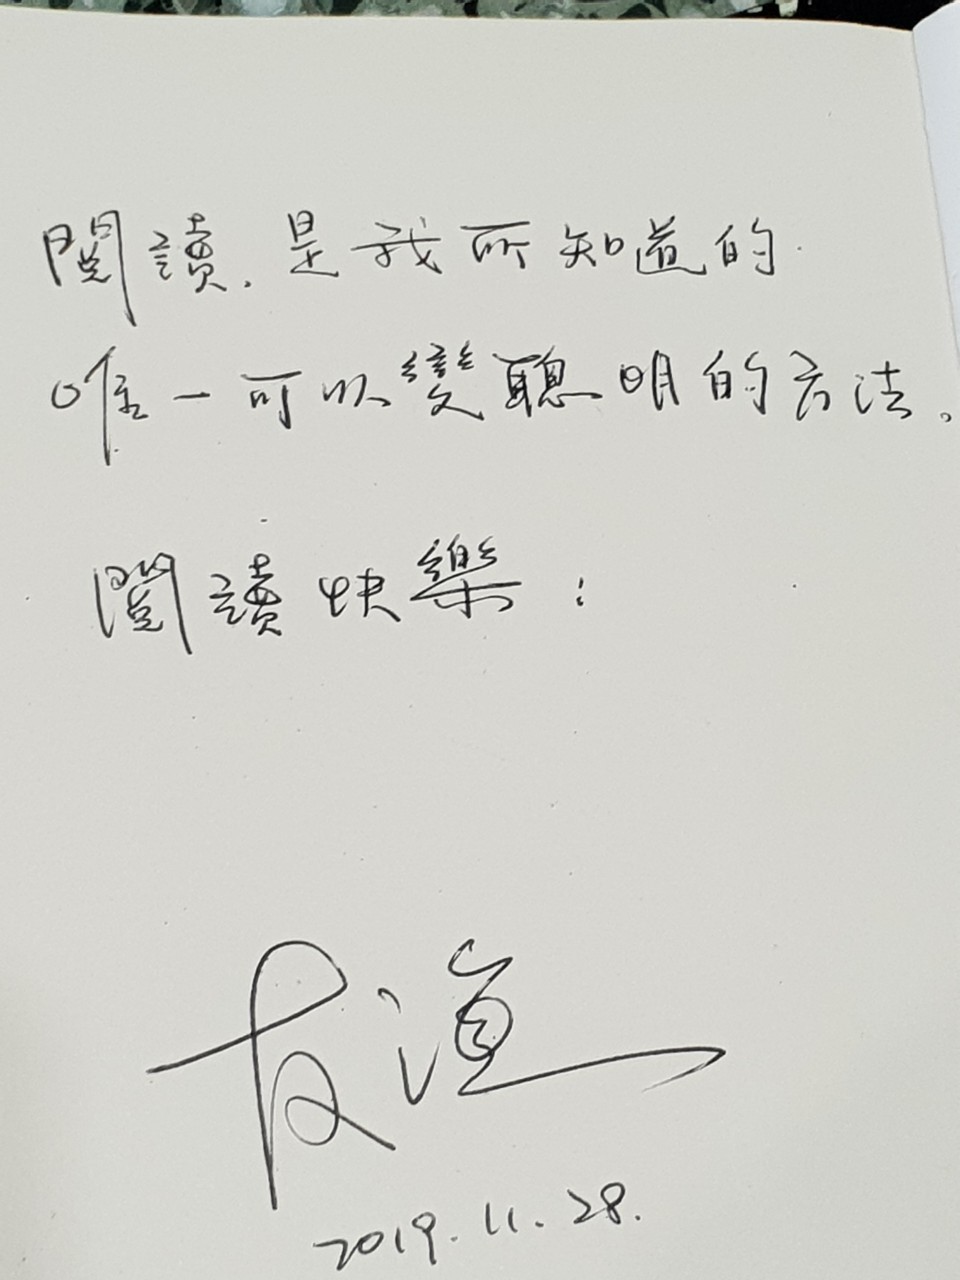 閱讀.是我所知道的
唯一可以變聰明的方法。
閱讀快樂！
友漁
2019.11.28.